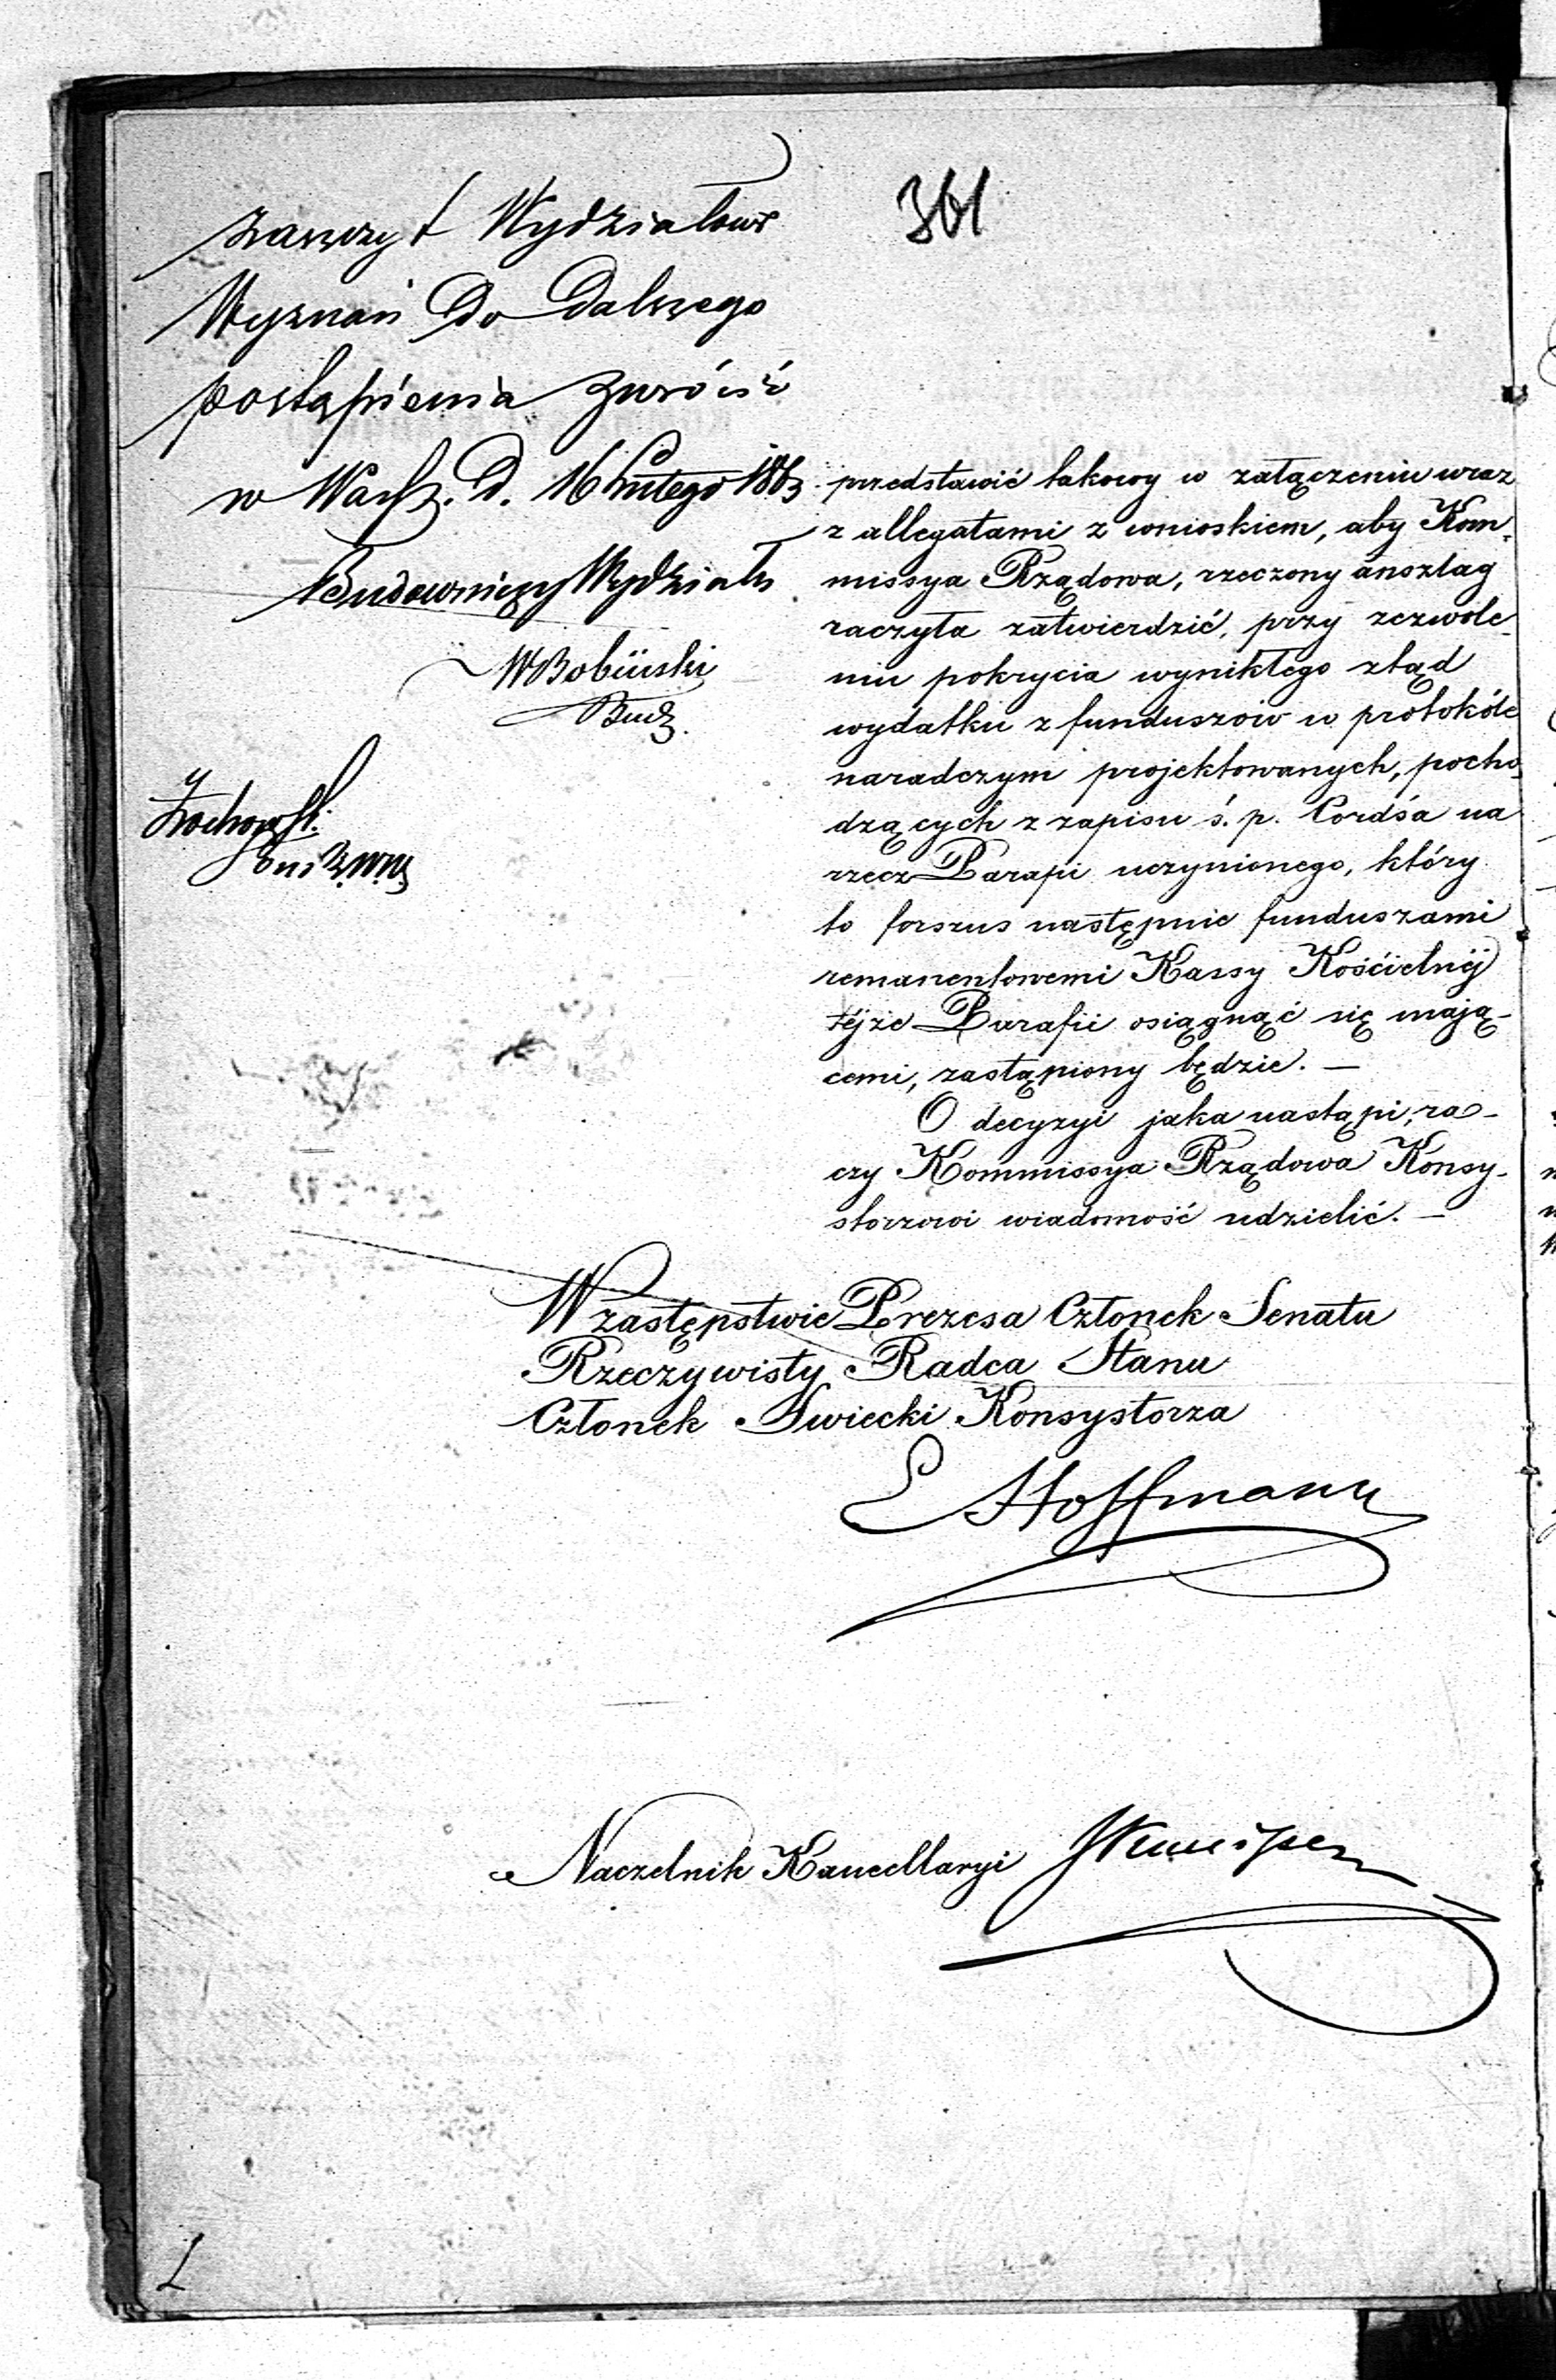 361
zaszczyt Wydziałowi
Wyznań do dalszego
postąpienia zwrócić
w Warsz. d. 16 Lutego 1863
Budowniczy Wydziału
WBobiński
Bud.
przedstawić takowy w załączeniu wraz
z allegatami z wnioskiem, aby Kom-
missya Rządowa, rzeczony anszlag
raczyła zatwierdzić, przy zezwole-
niu pokrycia wynikłego ztąd
wydatku z funduszów w protokóle
naradczym projektowanych, pocho-
dzących z zapisu ś. p. Cordśa na
rzecz Parafii uczynionego, który
to forszus następnie funduszami
remanentowemi Kassy Kościelnéj
téjże Parafii osiągnąć się mają-
cemi, zastąpiony będzie. —
O decyzyi jaka nastąpi, ra-
czy Kommissya Rządowa Konsy-
storzowi wiadomość udzielić. —
W zastępstwie Prezesa Członek Senatu
Rzeczywisty Radca Stanu
Członek Swiecki Konsystorza
Hoffmann
Naczelnik Kancellaryi